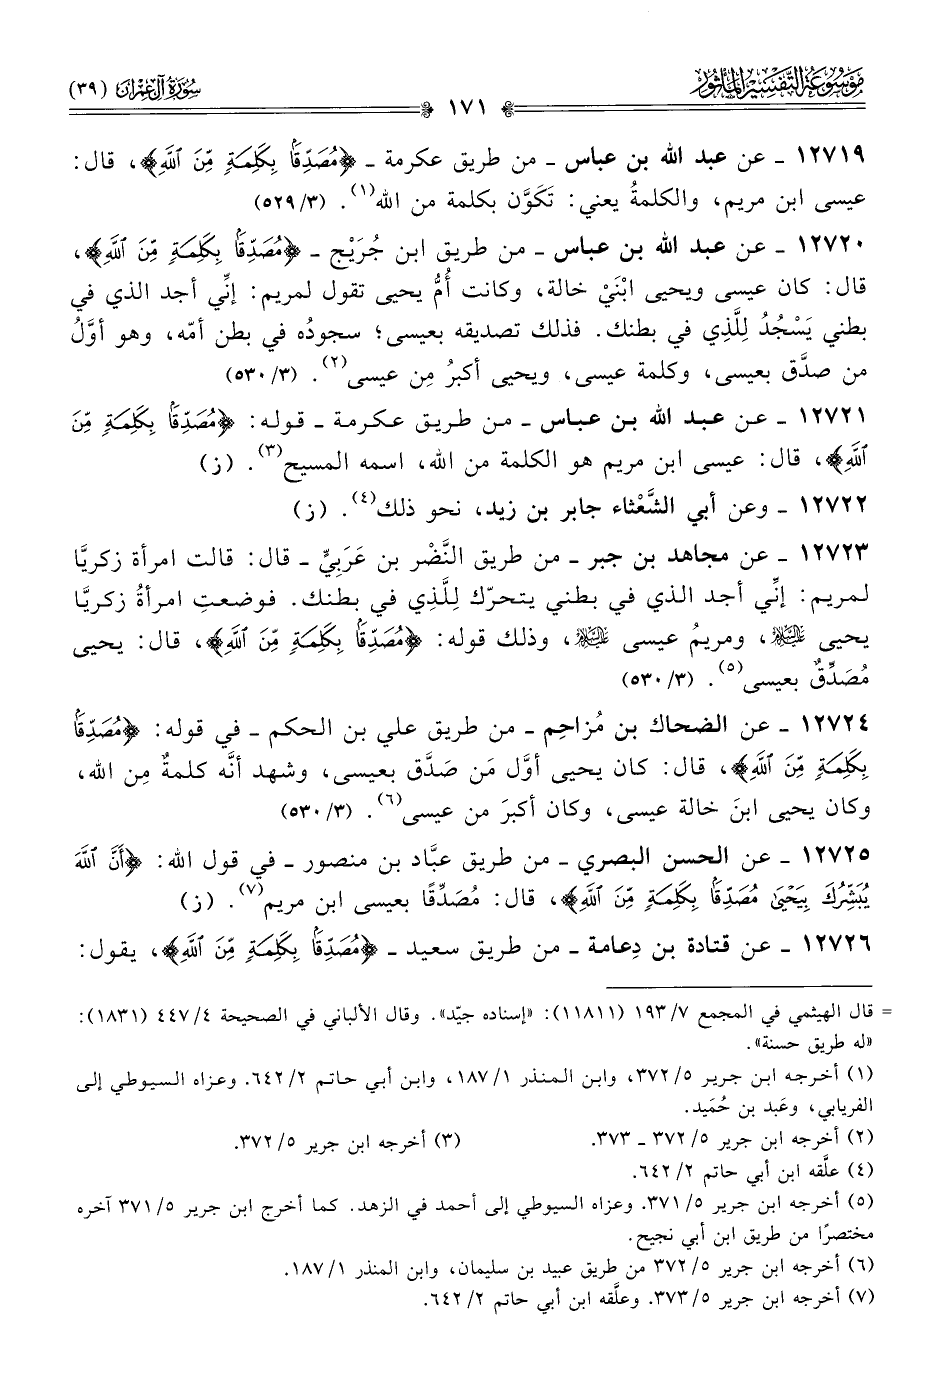 موسوعة التفسير المأثور
سورة آل عمران (٣٩)
١٧١
١٢٧١٩ ـ عن عبد الله بن عباس ـ من طريق عكرمة ـ ﴿مُصَدِّقًا بِكَلِمَةٍ مِّنَ ٱللَّهِ﴾، قال:
عيسى ابن مريم، والكلمةُ يعني: تَكَوَّن بكلمة من الله(١). (٥٢٩/٣)
١٢٧٢٠ ـ عن عبد الله بن عباس ـ من طريق ابن جُرَيْج ـ ﴿مُصَدِّقًا بِكَلِمَةٍ مِّنَ ٱللَّهِ﴾،
قال: كان عيسى ويحيى ابْنَيْ خالة، وكانت أُمُّ يحيى تقول لمريم: إنِّي أجد الذي في
بطني يَسْجُدُ لِلَّذِي في بطنك. فذلك تصديقه بعيسى؛ سجودُه في بطن أمّه، وهو أوَّلُ
من صدَّق بعيسى، وكلمة عيسى، ويحيى أكبرُ مِن عيسى(٢). (٥٣٠/٣)
١٢٧٢١ ـ عن عبد الله بن عباس ـ من طريق عكرمة ـ قوله: ﴿مُصَدِّقًا بِكَلِمَةٍ مِّنَ
ٱللَّهِ﴾، قال: عيسى ابن مريم هو الكلمة من الله، اسمه المسيح(٣). (ز)
١٢٧٢٢ ـ وعن أبي الشَّعْثاء جابر بن زيد، نحو ذلك(٤). (ز)
١٢٧٢٣ ـ عن مجاهد بن جبر ـ من طريق النَّضْر بن عَرَبِيٍّ ـ قال: قالت امرأة زكريَّا
لمريم: إنِّي أجد الذي في بطني يتحرّك لِلَّذِي في بطنك. فوضعتِ امرأةُ زكريَّا
يحيى ﵇، ومريمُ عيسى ﵇، وذلك قوله: ﴿مُصَدِّقًا بِكَلِمَةٍ مِّنَ ٱللَّهِ﴾، قال: يحيى
مُصَدِّقٌ بعيسى(٥). (٥٣٠/٣)
١٢٧٢٤ ـ عن الضحاك بن مُزاحِم ـ من طريق علي بن الحكم ـ في قوله: ﴿مُصَدِّقًا
بِكَلِمَةٍ مِّنَ ٱللَّهِ﴾، قال: كان يحيى أوَّل مَن صَدَّق بعيسى، وشهد أنَّه كلمةٌ مِن الله،
وكان يحيى ابنَ خالة عيسى، وكان أكبرَ من عيسى(٦). (٥٣٠/٣)
١٢٧٢٥ ـ عن الحسن البصري ـ من طريق عبَّاد بن منصور ـ في قول الله: ﴿أَنَّ ٱللَّهَ
يُبَشِّرُكَ بِيَحْيَىٰ مُصَدِّقًا بِكَلِمَةٍ مِّنَ ٱللَّهِ﴾، قال: مُصَدِّقًا بعيسى ابن مريم(٧). (ز)
١٢٧٢٦ ـ عن قتادة بن دِعامة ـ من طريق سعيد ـ ﴿مُصَدِّقًا بِكَلِمَةٍ مِّنَ ٱللَّهِ﴾، يقول:
= قال الهيثمي في المجمع ١٩٣/٧ (١١٨١١): «إسناده جيّد». وقال الألباني في الصحيحة ٤٤٧/٤ (١٨٣١):
«له طريق حسنة».
(١) أخرجه ابن جرير ٣٧٢/٥، وابن المنذر ١٨٧/١، وابن أبي حاتم ٦٤٢/٢. وعزاه السيوطي إلى
الفريابي، وعَبد بن حُمَيد.
(٢) أخرجه ابن جرير ٣٧٢/٥ ـ ٣٧٣. (٣) أخرجه ابن جرير ٣٧٢/٥.
(٤) علَّقه ابن أبي حاتم ٦٤٢/٢.
(٥) أخرجه ابن جرير ٣٧١/٥. وعزاه السيوطي إلى أحمد في الزهد. كما أخرج ابن جرير ٣٧١/٥ آخره
مختصرًا من طريق ابن أبي نجيح.
(٦) أخرجه ابن جرير ٣٧٢/٥ من طريق عبيد بن سليمان، وابن المنذر ١٨٧/١.
(٧) أخرجه ابن جرير ٣٧٣/٥. وعلَّقه ابن أبي حاتم ٦٤٢/٢.